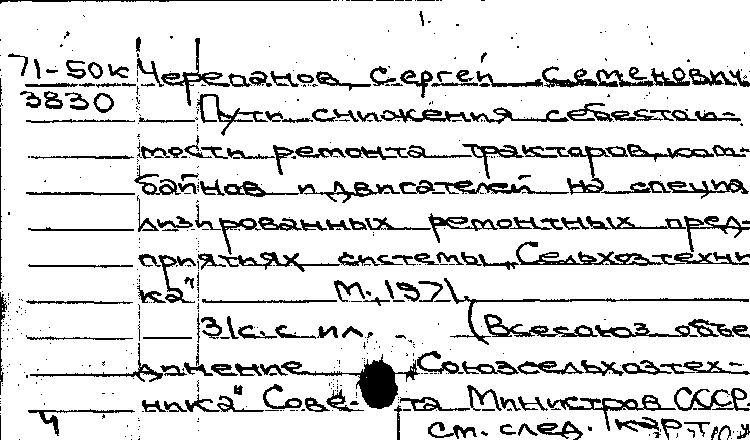 1.
71-50к Черепанов, Сергей Семенович.
3830 Пути снижения себестои-
мости ремонта тракторов, ком-
байнов и двигателей на специа
лизированных ремонтных пред-
приятиях системы „Сельхозтехни
ка" М., 1971.
31с. с ил. (Всесоюз. объе
динение „Союзсельхозтех-
ника" Сове-та Министров СССР.
ч см. след. карт.